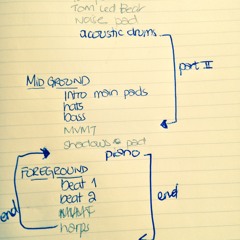 Noise pad
acoustic drums
part II
MID GROUND
Intro main pads
hats
bass
MVMT
shadows pad
piano
FOREGROUND
beat 1
end
beat 2
end
MVMT
harps